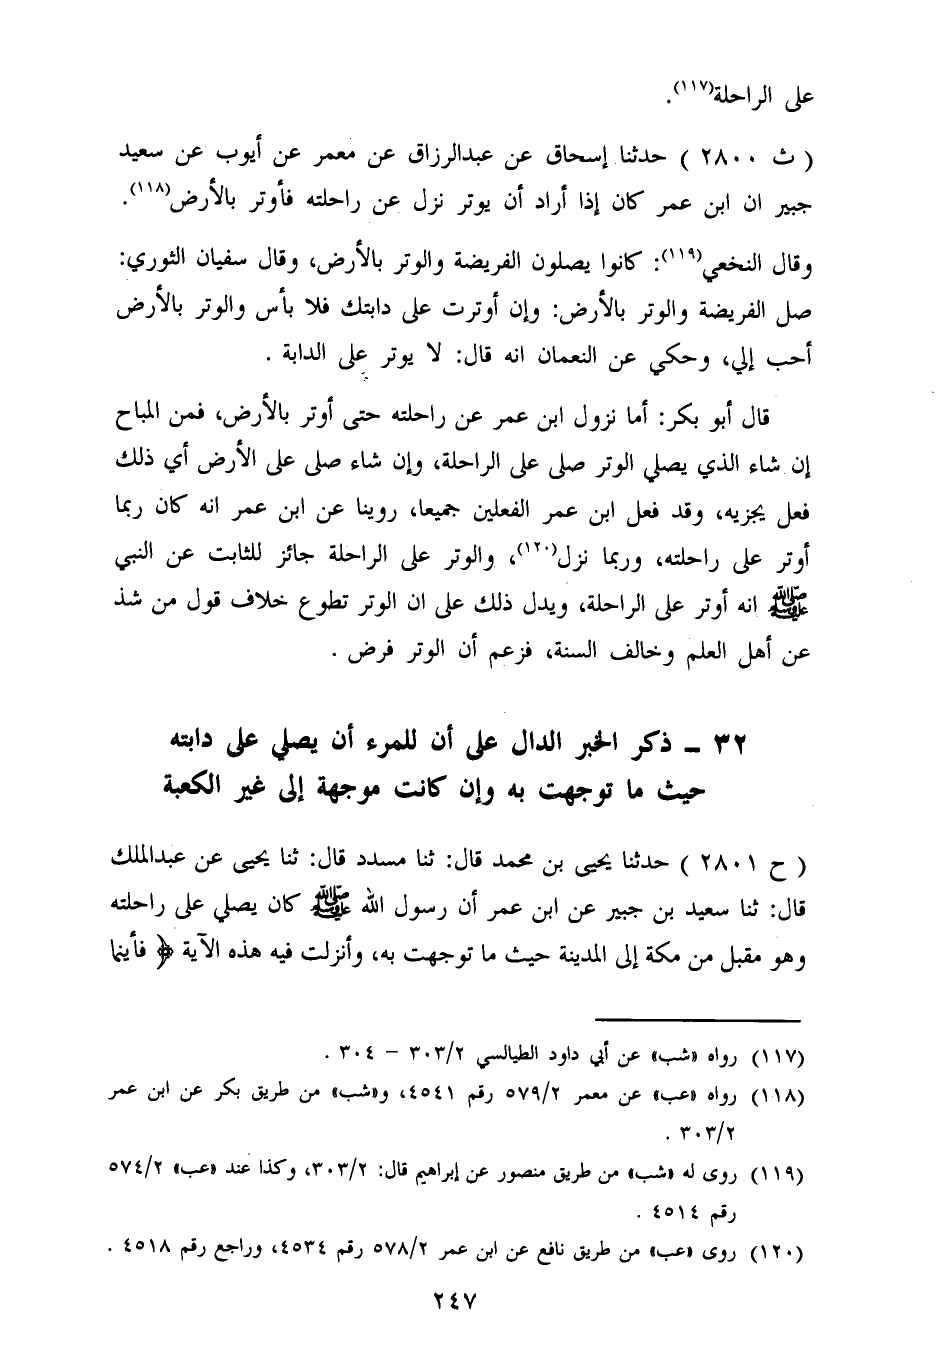 على الراحلة(١١٧).
( ث ٢٨٠٠ ) حدثنا إسحاق عن عبدالرزاق عن معمر عن أيوب عن سعيد
جبير ان ابن عمر كان إذا أراد أن يوتر نزل عن راحلته فأوتر بالأرض(١١٨).
وقال النخعي(١١٩): كانوا يصلون الفريضة والوتر بالأرض، وقال سفيان الثوري:
صل الفريضة والوتر بالأرض: وإن أوترت على دابتك فلا بأس والوتر بالأرض
أحب إلي، وحكي عن النعمان انه قال: لا يوتر على الدابة .
قال أبو بكر: أما نزول ابن عمر عن راحلته حتى أوتر بالأرض، فمن المباح
إن شاء الذي يصلي الوتر صلى على الراحلة، وإن شاء صلى على الأرض أي ذلك
فعل يجزيه، وقد فعل ابن عمر الفعلين جميعا، روينا عن ابن عمر انه كان ربما
أوتر على راحلته، وربما نزل(١٢٠)، والوتر على الراحلة جائز للثابت عن النبي
ﷺ انه أوتر على الراحلة، ويدل ذلك على ان الوتر تطوع خلاف قول من شذ
عن أهل العلم وخالف السنة، فزعم أن الوتر فرض .
٣٢ ـ ذكر الخبر الدال على أن للمرء أن يصلي على دابته
حيث ما توجهت به وإن كانت موجهة إلى غير الكعبة
( ح ٢٨٠١ ) حدثنا يحيى بن محمد قال: ثنا مسدد قال: ثنا يحيى عن عبدالملك
قال: ثنا سعيد بن جبير عن ابن عمر أن رسول الله ﷺ كان يصلي على راحلته
وهو مقبل من مكة إلى المدينة حيث ما توجهت به، وأنزلت فيه هذه الآية ﴿ فأينما
(١١٧) رواه «شب» عن أبي داود الطيالسي ٣٠٣/٢ – ٣٠٤ .
(١١٨) رواه «عب» عن معمر ٥٧٩/٢ رقم ٤٥٤١، و«شب» من طريق بكر عن ابن عمر
٣٠٣/٢ .
(١١٩) روى له «شب» من طريق منصور عن إبراهيم قال: ٣٠٣/٢، وكذا عند «عب» ٥٧٤/٢
رقم ٤٥١٤ .
(١٢٠) روى «عب» من طريق نافع عن ابن عمر ٥٧٨/٢ رقم ٤٥٣٤، وراجع رقم ٤٥١٨ .
٢٤٧